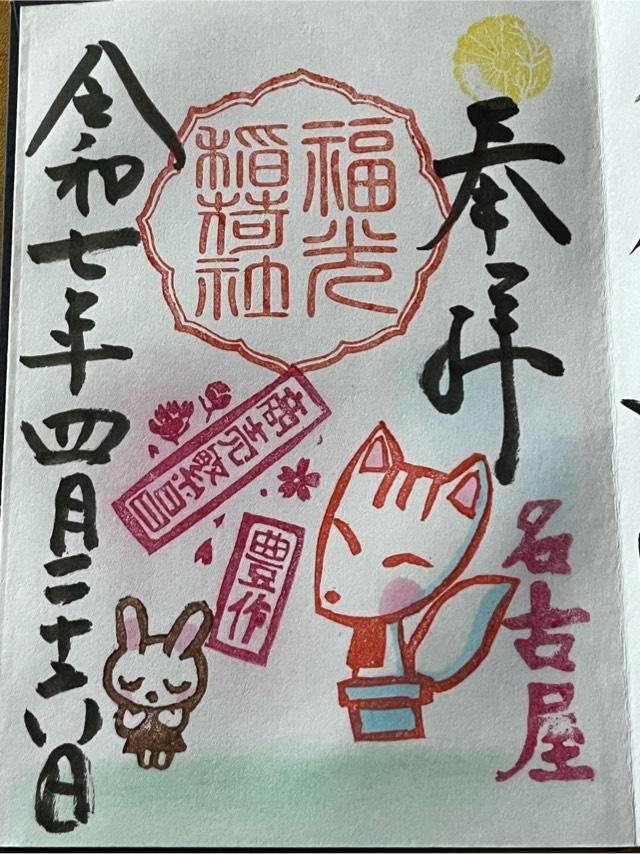 奉拝
名古屋
福光
稲荷社
商売繁昌
豊作
令和七年四月二十六日